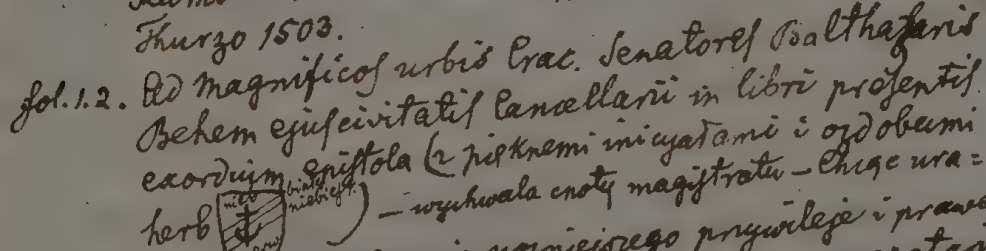 Thurzo 1503.
fol. 1. 2. Ad Magnificos urbis Crac. Senatores Balthasaris
Behem ejus civitatis Cancellarii in libri presentis
exordium epistola (z pięknemi inicyałami i ozdobami
herb nieb biały niebiesk. ) – wychwala cnoty magistratu – Chcąc ura=
przywileje i prawa